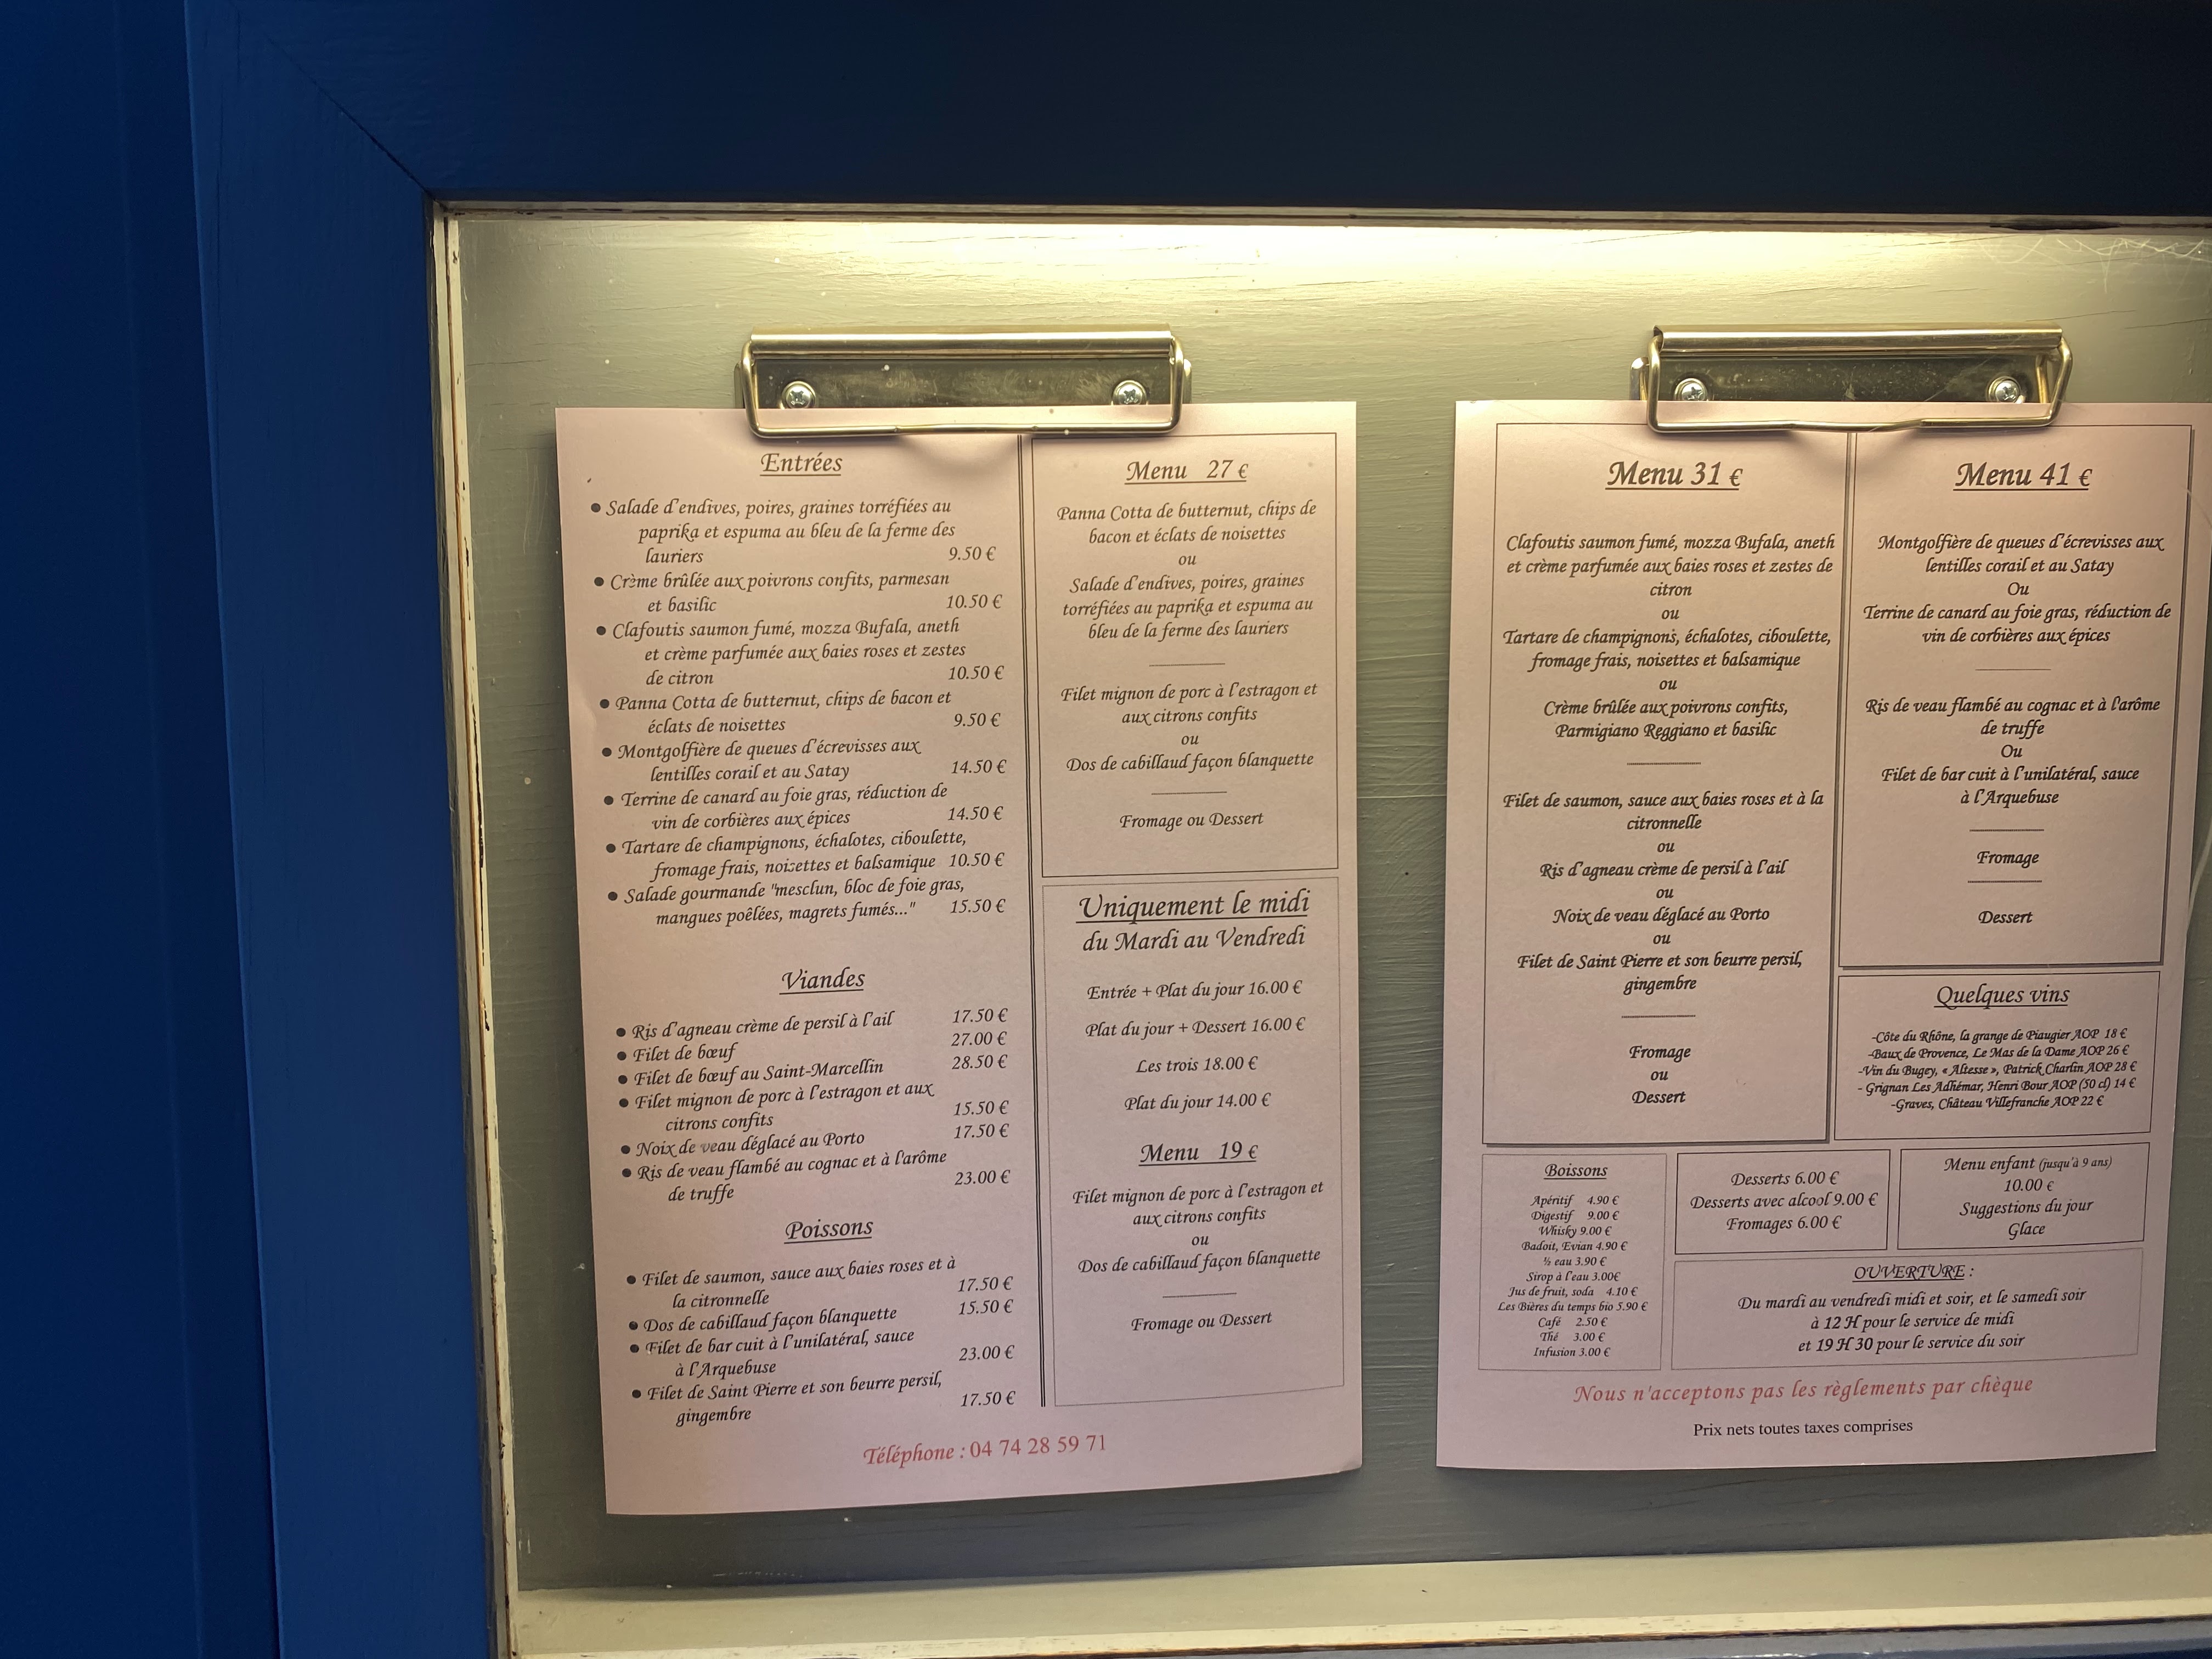 Entrées
• Salade d'endives, poires, graines torréfiées au
paprika et espuma au bleu de la ferme des
lauriers 9.50 €
• Crème brûlée aux poivrons confits, parmesan
et basilic 10.50 €
• Clafoutis saumon fumé, mozza Bufala, aneth
et crème parfumée aux baies roses et zestes
de citron 10.50 €
• Panna Cotta de butternut, chips de bacon et
éclats de noisettes 9.50 €
• Montgolfière de queues d'écrevisses aux
lentilles corail et au Satay 14.50 €
• Terrine de canard au foie gras, réduction de
vin de corbières aux épices 14.50 €
• Tartare de champignons, échalotes, ciboulette,
fromage frais, noisettes et balsamique 10.50 €
• Salade gourmande "mesclun, bloc de foie gras,
mangues poêlées, magrets fumés..." 15.50 €
Viandes
• Ris d'agneau crème de persil à l'ail 17.50 €
• Filet de bœuf 27.00 €
• Filet de bœuf au Saint-Marcellin 28.50 €
• Filet mignon de porc à l'estragon et aux
citrons confits 15.50 €
• Noix de veau déglacé au Porto 17.50 €
• Ris de veau flambé au cognac et à l'arôme
de truffe 23.00 €
Poissons
• Filet de saumon, sauce aux baies roses et à
la citronnelle 17.50 €
• Dos de cabillaud façon blanquette 15.50 €
• Filet de bar cuit à l'unilatéral, sauce
à l'Arquebuse 23.00 €
• Filet de Saint Pierre et son beurre persil,
gingembre 17.50 €
Menu 27 €
Panna Cotta de butternut, chips de
bacon et éclats de noisettes
ou
Salade d'endives, poires, graines
torréfiées au paprika et espuma au
bleu de la ferme des lauriers
Filet mignon de porc à l'estragon et
aux citrons confits
ou
Dos de cabillaud façon blanquette
Fromage ou Dessert
Uniquement le midi
du Mardi au Vendredi
Entrée + Plat du jour 16.00 €
Plat du jour + Dessert 16.00 €
Les trois 18.00 €
Plat du jour 14.00 €
Menu 19 €
Filet mignon de porc à l'estragon et
aux citrons confits
ou
Dos de cabillaud façon blanquette
Fromage ou Dessert
Téléphone : 04 74 28 59 71
Menu 31 €
Clafoutis saumon fumé, mozza Bufala, aneth
et crème parfumée aux baies roses et zestes de
citron
ou
Tartare de champignons, échalotes, ciboulette,
fromage frais, noisettes et balsamique
ou
Crème brûlée aux poivrons confits,
Parmigiano Reggiano et basilic
Filet de saumon, sauce aux baies roses et à la
citronnelle
ou
Ris d'agneau crème de persil à l'ail
ou
Noix de veau déglacé au Porto
ou
Filet de Saint Pierre et son beurre persil,
gingembre
Fromage
ou
Dessert
Menu 41 €
Montgolfière de queues d'écrevisses aux
lentilles corail et au Satay
Ou
Terrine de canard au foie gras, réduction de
vin de corbières aux épices
Ris de veau flambé au cognac et à l'arôme
de truffe
Ou
Filet de bar cuit à l'unilatéral, sauce
à l'Arquebuse
Fromage
Dessert
Quelques vins
-Côte du Rhône, la grange de Piaugier AOP 18 €
-Baux de Provence, Le Mas de la Dame AOP 26 €
-Vin du Bugey, « Altesse », Patrick Charlin AOP 28 €
- Grignan Les Adhémar, Henri Bour AOP (50 cl) 14 €
-Graves, Château Villefranche AOP 22 €
Boissons
Apéritif 4.90 €
Digestif 9.00 €
Whisky 9.00 €
Badoit, Evian 4.90 €
½ eau 3.90 €
Sirop à l'eau 3.00€
Jus de fruit, soda 4.10 €
Les Bières du temps bio 5.90 €
Café 2.50 €
Thé 3.00 €
Infusion 3.00 €
Desserts 6.00 €
Desserts avec alcool 9.00 €
Fromages 6.00 €
Menu enfant (jusqu'à 9 ans)
10.00 €
Suggestions du jour
Glace
OUVERTURE :
Du mardi au vendredi midi et soir, et le samedi soir
à 12 H pour le service de midi
et 19 H 30 pour le service du soir
Nous n'acceptons pas les règlements par chèque
Prix nets toutes taxes comprises